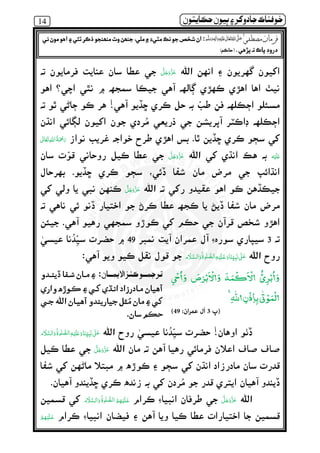 خوفناڪ جادوگر ۽ ٻيون حڪايتون
14
فرمانِ مصطفيٰ: اُن شخص جو نڪ مٽيءَ ۾ ملي، جنهن وٽ منهنجو ذڪر ٿئي ۽ اهو مون تي
درود پاڪ نہ پڙهي. (حاڪم)
اکيون گهريون ۽ انهن الله عَزَّوَجَلَّ جي عطا سان عنايت فرمايون تہ
نيٺ اها اهڙي ڪهڙي ڳالهہ آهي جيڪا سمجهہ ۾ نٿي اچي؟ اهو
مسئلو اڄڪلهہ فنِ طِبّ بہ حل ڪري ڇڏيو آهي! هر ڪو ڄاڻي ٿو تہ
اڄڪلهہ ڊاڪٽر آپريشن جي ذريعي مُردي جون اکيون لڳائي انڌن
کي سڄو ڪري ڇڏين ٿا. بس اهڙي طرح خواجہ غريب نواز
بہ هڪ انڌي کي الله عَزَّوَجَلَّ جي عطا ڪيل روحاني قوّت سان
انڌائپ جي مرض مان شفا ڏئي، سڄو ڪري ڇڏيو. بهرحال
جيڪڏهن ڪو اهو عقيدو رکي تہ الله عَزَّوَجَلَّ ڪنهن نبي يا ولي کي
مرض مان شفا ڏيڻ يا ڪجهہ عطا ڪرڻ جو اختيار ڏنو ئي ناهي تہ
اهڙو شخص قرآن جي حڪم کي ڪوڙو سمجهي رهيو آهي، جيئن
تہ 3 سيپاري سورهءِ آل عمران آيت نمبر 49 ۾ حضرت سيِّدُنا عيسيٰ
روح الله عَلَيْهِ الصَّلٰوةُ وَالسَّلَام جو قول نقل ڪيو ويو آهي:
وَاُبْرِئُ الْاَكْمَهَ وَالْاَبْرَصَ وَاُحْيِ
الْمَوْتٰى بِاِذْنِ اللّٰهِۚ
(پ 3 آل عمران: 49)
ترجمو ڪنزالايمان: ۽ مان شفا ڏيندو
آهيان مادرزاد انڌي کي ۽ ڪوڙهہ واري
کي ۽ مان مُئل جياريندو آهيان الله جي
حڪم سان.
ڏٺو اوهان! حضرت سيِّدُنا عيسيٰ روح الله عَلَيْهِ الصَّلٰوةُ وَالسَّلَام
صاف صاف اعلان فرمائي رهيا آهن تہ مان الله عَزَّوَجَلَّ جي عطا ڪيل
قدرت سان مادرزاد انڌن کي سڄو ۽ ڪوڙهہ ۾ مبتلا ماڻهن کي شفا
ڏيندو آهيان ايتري قدر جو مُردن کي بہ زنده ڪري ڇڏيندو آهيان.
الله عَزَّوَجَلَّ جي طرفان انبياءِ ڪرام عَلَيْهِمُ الصَّلٰوةُ وَالسَّلَام کي قسمين
قسمين جا اختيارات عطا ڪيا ويا آهن ۽ فيضانِ انبياءِ ڪرام عَلَيْهِمُ